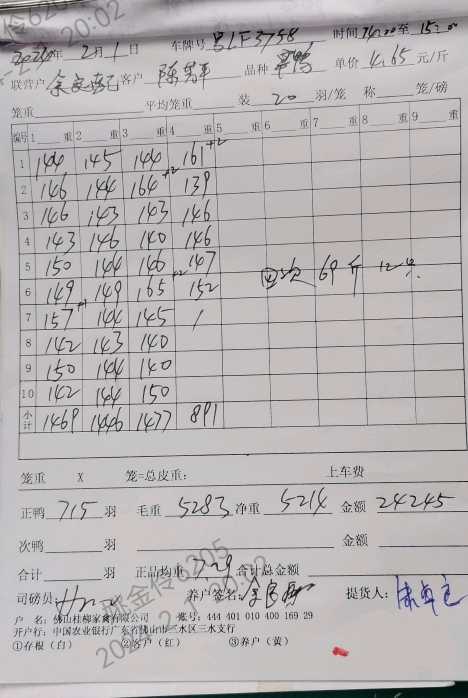 2024年 2月1日 车牌号 粤LF3758 时间 14:20至15:00
联营户 客户 品种 单价 4.65 元/斤
笼重 平均笼重 装 20 羽/笼 称 笼/磅
编号 1 重 2 重 3 重 4 重 5 重 6 重 7 重 8 重 9 重
1 144 145 144 161 +2
2 146 144 164 +2 139
3 146 143 143 146
4 143 146 140 146
5 150 144 146 147 回次 69斤 12只
6 149 149 165 +2 152
7 157 +1 144 145 /
8 142 143 140
9 150 144 140
10 142 144 150
小计 1469 1446 1477 891
笼重 X 笼=总皮重: 上车费
正鸭 715 羽 毛重 5283 净重 5214 金额 24245
次鸭 羽 金额
合计 羽 正品均重 7.29 合计总金额
司磅员: 养户签名: 提货人:
户 名: 佛山桂柳家禽有限公司 账号: 444 401 010 400 169 29
开户行: 中国农业银行广东省佛山市三水区三水支行
①存根(白) ②客户(红) ③养户(黄)
金伶6205
20:02